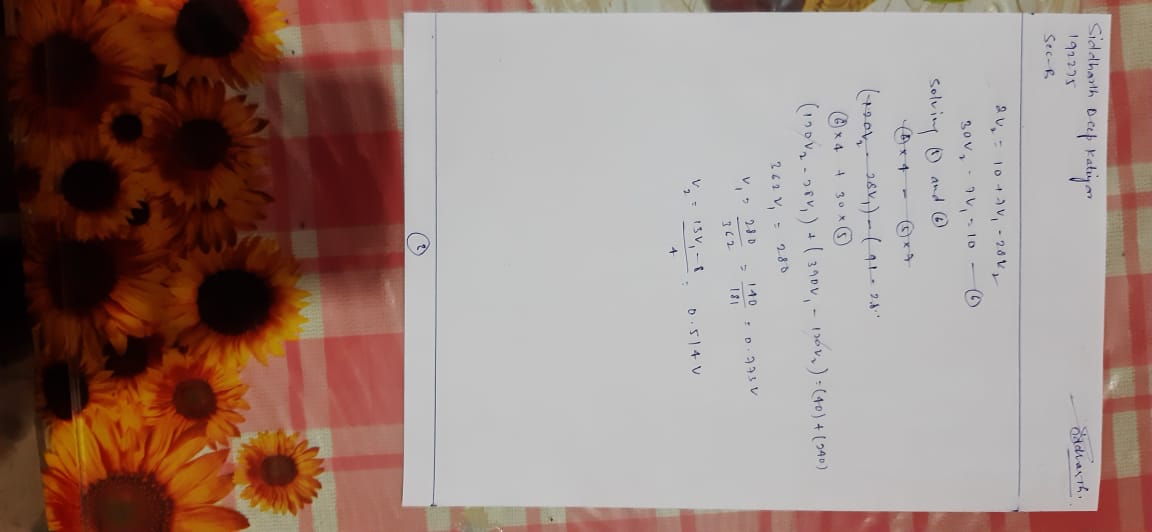 Siddharth Deep Katiyar
192275
Sec-B
Siddharth.
2V₂ = 10 + 7V₁ - 28V₂
30V₂ - 7V₁ = 10 — ⑥
Solving ⑤ and ⑥
⑥×4 + 30×⑤
(120V₂ - 28V₁) + (390V₁ - 120V₂) = (40) + (240)
362V₁ = 280
V₁ = 280/362 = 140/181 = 0.773V
V₂ = 13V₁ - 8 / 4 = 0.514V
②